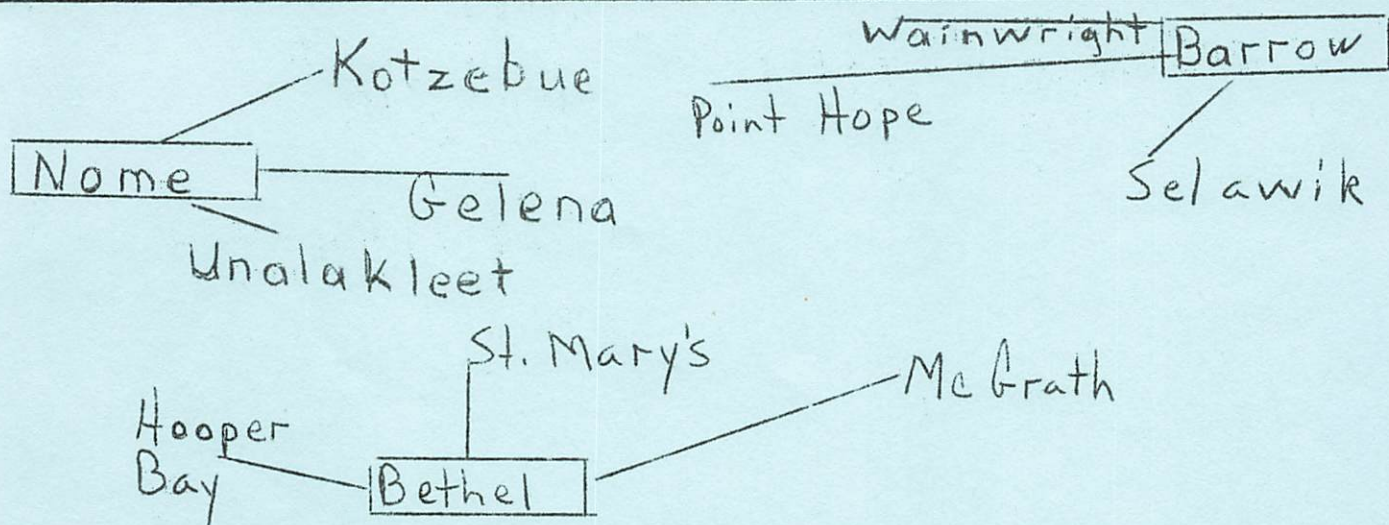 Kotzebue
Wainwright Barrow
Point Hope
Nome
Gelena
Selawik
Unalakleet
St. Mary's
McGrath
Hooper
Bay
Bethel